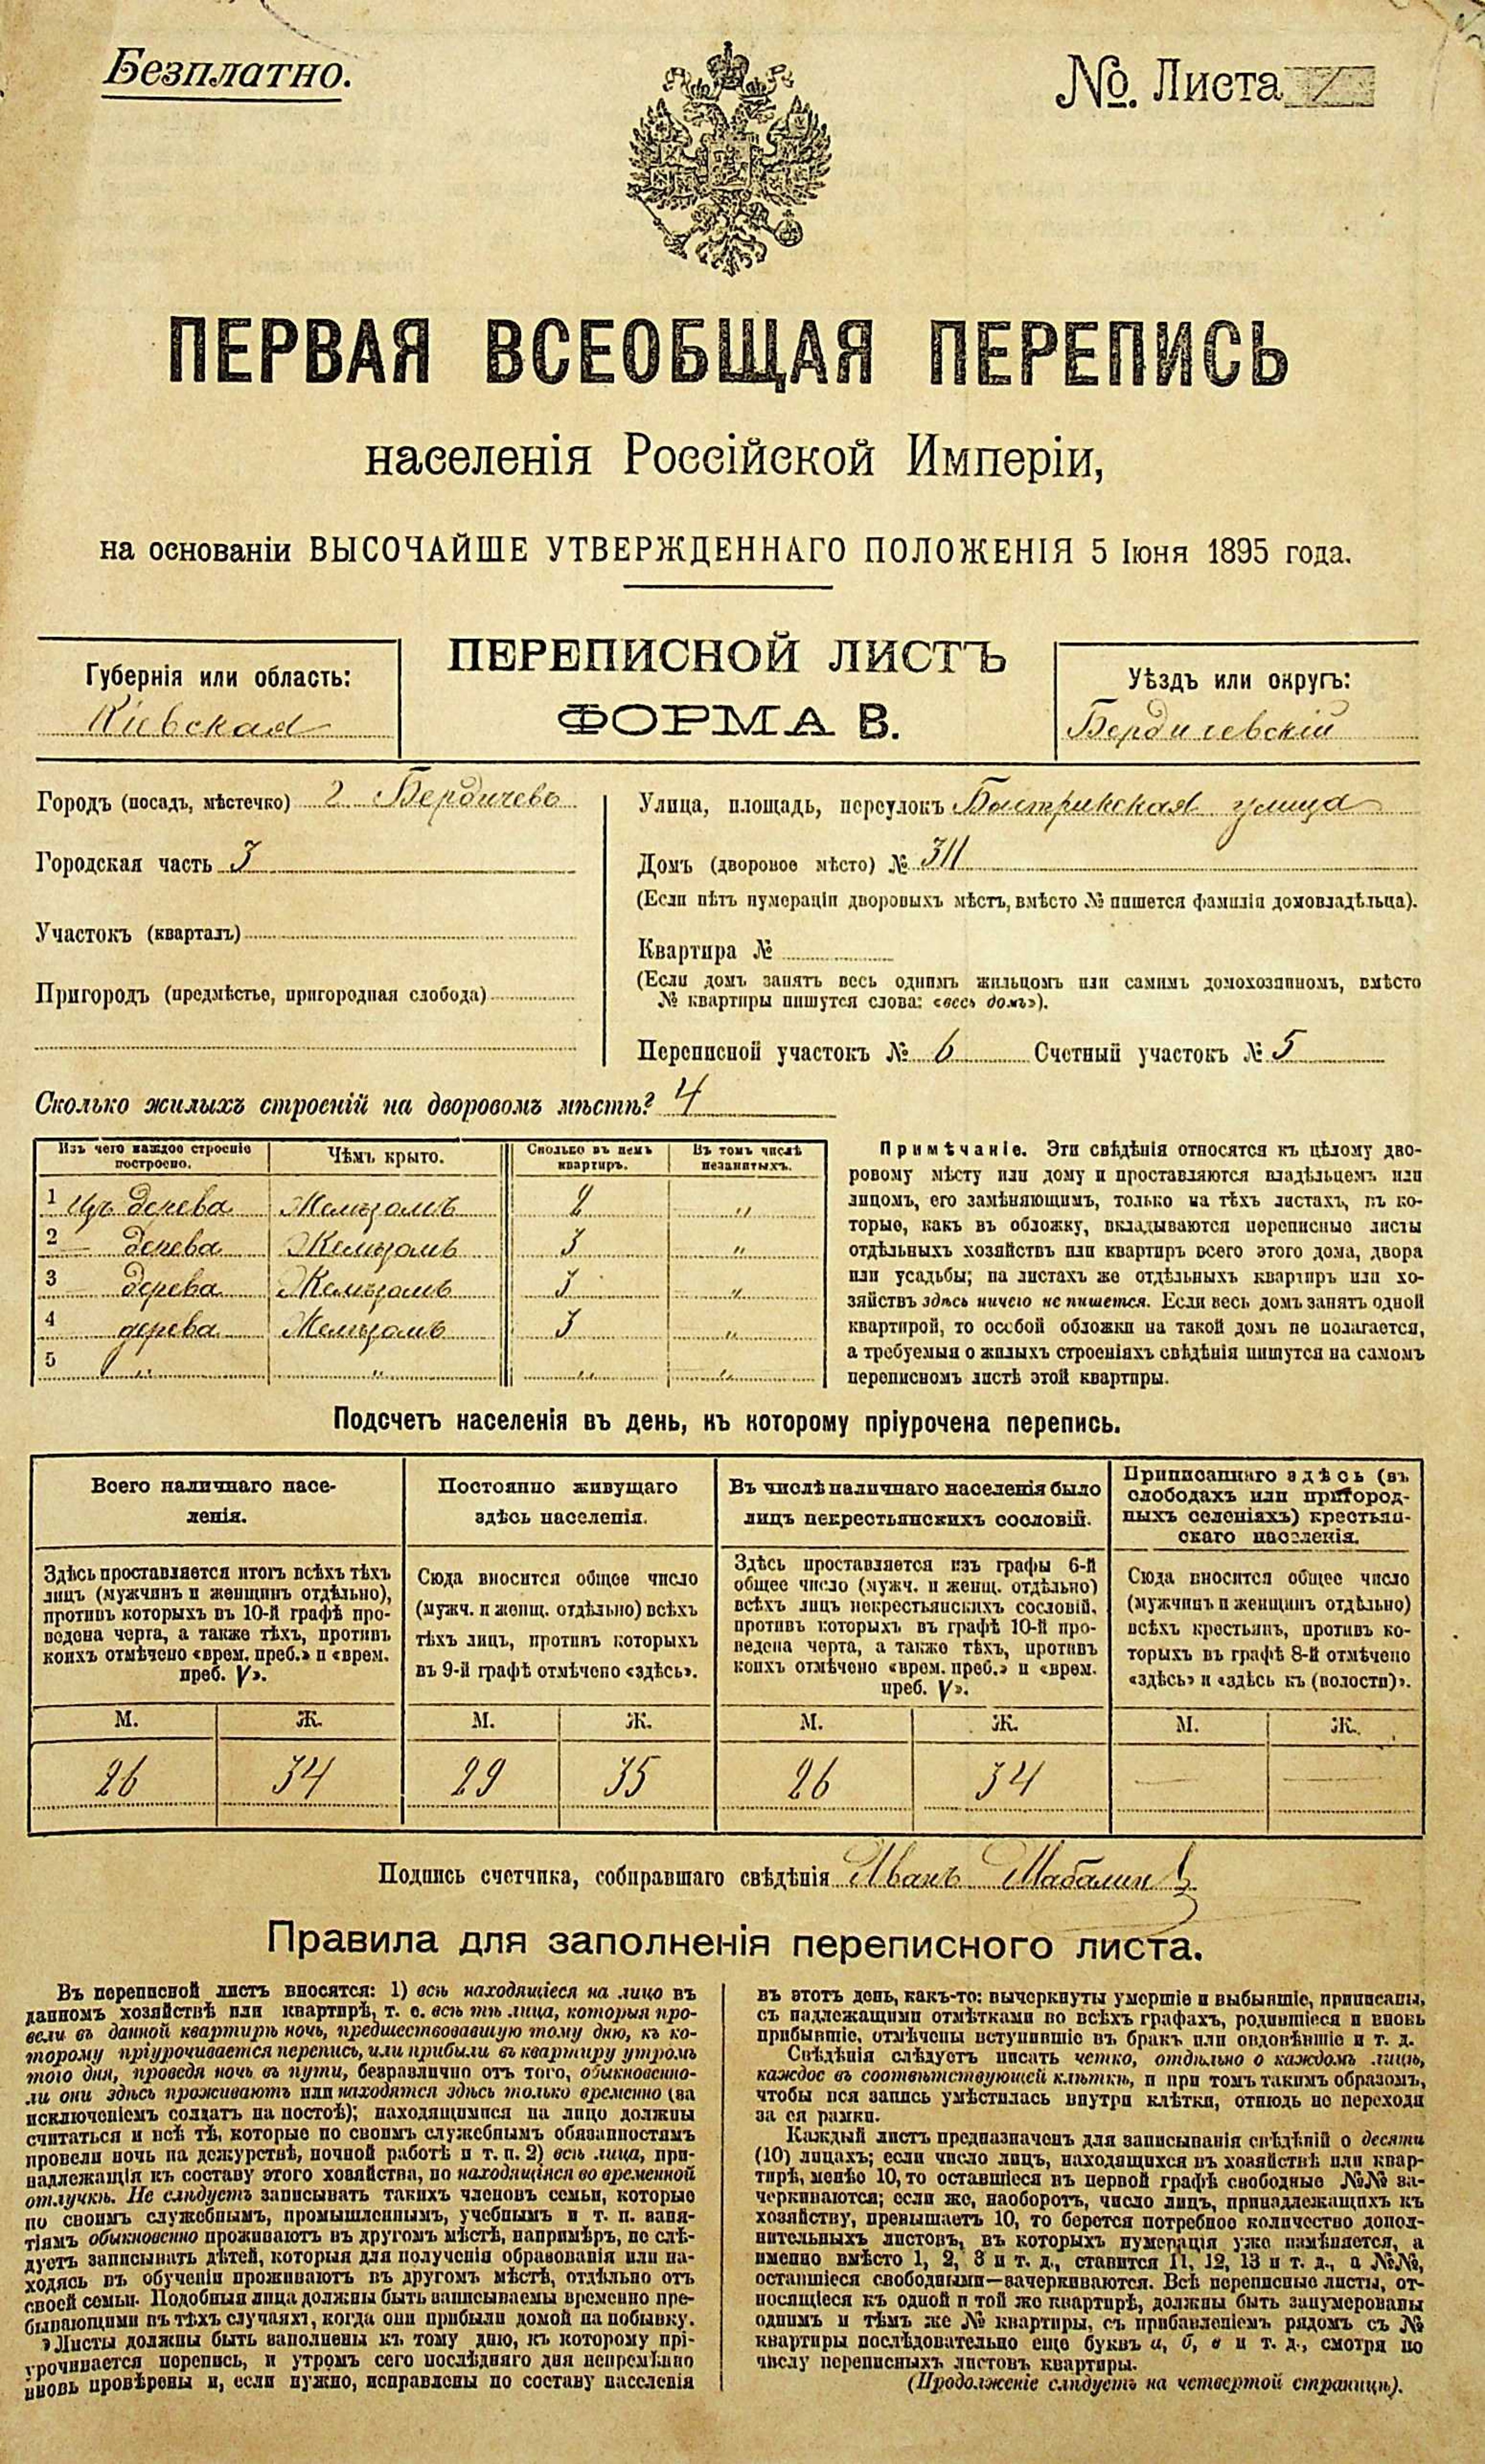 Безплатно.
№. Листа
ПЕРВАЯ ВСЕОБЩАЯ ПЕРЕПИСЬ
населенія Россійской Имперіи,
на основаніи ВЫСОЧАЙШЕ УТВЕРЖДЕННАГО ПОЛОЖЕНІЯ 5 Іюня 1895 года.
ПЕРЕПИСНОЙ ЛИСТЪ
ФОРМА В.
Губернія или область:
Кіевская
Уѣздъ или округъ:
Бердичевскій
Городъ (посадъ, мѣстечко) г Бердичевъ
Городская часть 3
Участокъ (кварталъ)
Пригородъ (предмѣстье, пригородная слобода)
Улица, площадь, переулокъ Быстрикская улица
Домъ (дворовое мѣсто) № 311
(Если нѣтъ нумераціи дворовыхъ мѣстъ, вмѣсто № пишется фамилія домовладѣльца).
Квартира №
(Если домъ занятъ весь однимъ жильцомъ или самимъ домохозяиномъ, вмѣсто
№ квартиры пишутся слова: «весь домъ»).
Переписной участокъ № 6 Счетный участокъ № 5
Сколько жилыхъ строеній на дворовомъ мѣстѣ? 4
Изъ чего каждое строеніе построено. Чѣмъ крыто. Сколько въ немъ квартиръ. Въ томъ числѣ незанятыхъ.
1 Изъ дерева Желѣзомъ 2 "
2 — дерева Желѣзомъ 3 "
3 — дерева Желѣзомъ 3 "
4 дерева Желѣзомъ 3 "
5 " " " "
Примѣчаніе. Эти свѣдѣнія относятся къ цѣлому дво-
ровому мѣсту или дому и проставляются владѣльцемъ или
лицомъ, его замѣняющимъ, только на тѣхъ листахъ, въ ко-
торые, какъ въ обложку, вкладываются переписные листы
отдѣльныхъ хозяйствъ или квартиръ всего этого дома, двора
или усадьбы; на листахъ же отдѣльныхъ квартиръ или хо-
зяйствъ здѣсь ничего не пишется. Если весь домъ занятъ одной
квартирой, то особой обложки на такой домъ не полагается,
а требуемыя о жилыхъ строеніяхъ свѣдѣнія пишутся на самомъ
переписномъ листѣ этой квартиры.
Подсчетъ населенія въ день, къ которому пріурочена перепись.
Всего наличнаго насе-
ленія.
Здѣсь проставляется итогъ всѣхъ тѣхъ
лицъ (мужчинъ и женщинъ отдѣльно),
противъ которыхъ въ 10-й графѣ про-
ведена черта, а также тѣхъ, противъ
коихъ отмѣчено «врем. преб.» и «врем.
преб. V».
М. Ж.
26 34
Постоянно живущаго
здѣсь населенія.
Сюда вносится общее число
(мужч. и женщ. отдѣльно) всѣхъ
тѣхъ лицъ, противъ которыхъ
въ 9-й графѣ отмѣчено «здѣсь».
М. Ж.
29 35
Въ числѣ наличнаго населенія было
лицъ некрестьянскихъ сословій.
Здѣсь проставляется изъ графы 6-й
общее число (мужч. и женщ. отдѣльно)
всѣхъ лицъ некрестьянскихъ сословій,
противъ которыхъ въ графѣ 10-й про-
ведена черта, а также тѣхъ, противъ
коихъ отмѣчено «врем. преб.» и «врем.
преб. V».
М. Ж.
26 34
Приписаннаго здѣсь (въ
слободахъ или пригород-
ныхъ селеніяхъ) крестьян-
скаго населенія.
Сюда вносится общее число
(мужчинъ и женщинъ отдѣльно)
всѣхъ крестьянъ, противъ ко-
торыхъ въ графѣ 8-й отмѣчено
«здѣсь» и «здѣсь къ (волости)».
М. Ж.
— —
Подпись счетчика, собиравшаго свѣдѣнія Иванъ
Правила для заполненія переписного листа.
Въ переписной листъ вносятся: 1) всѣ находящіеся на лицо въ
данномъ хозяйствѣ или квартирѣ, т. е. всѣ тѣ лица, которыя про-
вели въ данной квартирѣ ночь, предшествовавшую тому дню, къ ко-
торому пріурочивается перепись, или прибыли въ квартиру утромъ
того дня, проведя ночь въ пути, безразлично отъ того, обыкновенно-
ли они здѣсь проживаютъ или находятся здѣсь только временно (за
исключеніемъ солдатъ на постоѣ); находящимися на лицо должны
считаться и всѣ тѣ, которые по своимъ служебнымъ обязанностямъ
провели ночь на дежурствѣ, ночной работѣ и т. п. 2) всѣ лица, при-
надлежащія къ составу этого хозяйства, но находящіяся во временной
отлучкѣ. Не слѣдуетъ записывать такихъ членовъ семьи, которые
по своимъ служебнымъ, промышленнымъ, учебнымъ и т. п. заня-
тіямъ обыкновенно проживаютъ въ другомъ мѣстѣ, напримѣръ, не слѣ-
дуетъ записывать дѣтей, которыя для полученія образованія или на-
ходясь въ обученіи проживаютъ въ другомъ мѣстѣ, отдѣльно отъ
своей семьи. Подобныя лица должны быть записываемы временно пре-
бывающими въ тѣхъ случаяхъ, когда они прибыли домой на побывку.
Листы должны быть заполнены къ тому дню, къ которому прі-
урочивается перепись, и утромъ сего послѣдняго дня непремѣнно
вновь провѣрены и, если нужно, исправлены по составу населенія
въ этотъ день, какъ-то: вычеркнуты умершіе и выбывшіе, приписаны,
съ надлежащими отмѣтками во всѣхъ графахъ, родившіеся и вновь
прибывшіе, отмѣчены вступившіе въ бракъ или овдовѣвшіе и т. д.
Свѣдѣнія слѣдуетъ писать четко, отдѣльно о каждомъ лицѣ,
каждое въ соотвѣтствующей клѣткѣ, и при томъ такимъ образомъ,
чтобы вся запись умѣстилась внутри клѣтки, отнюдь не переходя
за ея рамки.
Каждый листъ предназначенъ для записыванія свѣдѣній о десяти
(10) лицахъ; если число лицъ, находящихся въ хозяйствѣ или квар-
тирѣ, менѣе 10, то оставшіеся въ первой графѣ свободные №№ за-
черкиваются; если же, наоборотъ, число лицъ, принадлежащихъ къ
хозяйству, превышаетъ 10, то берется потребное количество допол-
нительныхъ листовъ, въ которыхъ нумерація уже измѣняется, а
именно вмѣсто 1, 2, 3 и т. д., ставится 11, 12, 13 и т. д., а №№,
оставшіеся свободными—зачеркиваются. Всѣ переписные листы, от-
носящіеся къ одной и той же квартирѣ, должны быть занумерованы
однимъ и тѣмъ же № квартиры, съ прибавленіемъ рядомъ съ №
квартиры послѣдовательно еще буквъ а, б, в и т. д., смотря по
числу переписныхъ листовъ квартиры.
(Продолженіе слѣдуетъ на четвертой страницѣ).